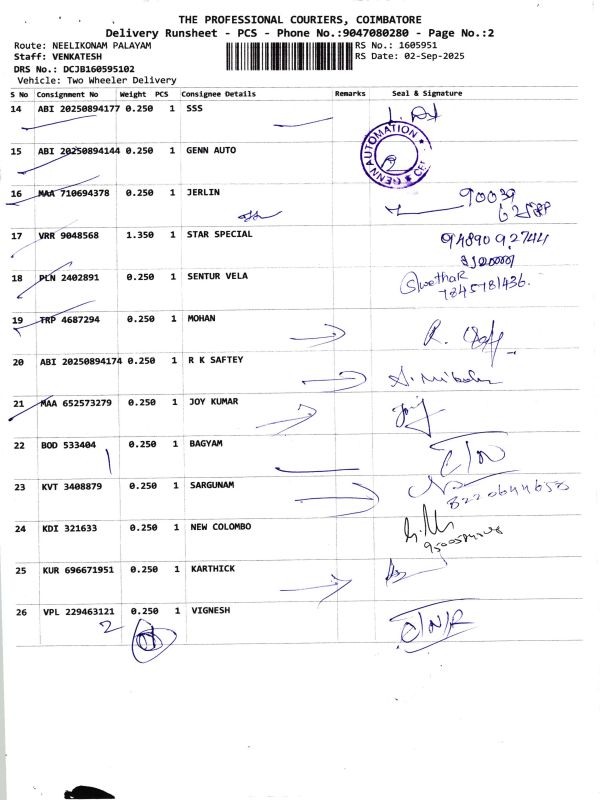 THE PROFESSIONAL COURIERS, COIMBATORE
Delivery Runsheet - PCS - Phone No.:9047080280 - Page No.:2
Route: NEELIKONAM PALAYAM
RS No.: 1605951
Staff: VENKATESH
RS Date: 02-Sep-2025
DRS No.: DCJB160595102
Vehicle: Two Wheeler Delivery
S No Consignment No Weight PCS Consignee Details Remarks Seal & Signature
14 ABI 20250894177 0.250 1 SSS
15 ABI 20250894144 0.250 1 GENN AUTO
GENN AUTOMATION
16 MAA 710694378 0.250 1 JERLIN
90039
17 VRR 9048568 1.350 1 STAR SPECIAL
9489092744
18 PLN 2402891 0.250 1 SENTUR VELA
SwethaR
7845781436.
19 TRP 4687294 0.250 1 MOHAN
20 ABI 20250894174 0.250 1 R K SAFTEY
21 MAA 652573279 0.250 1 JOY KUMAR
22 BOD 533404 0.250 1 BAGYAM
C/N
23 KVT 3408879 0.250 1 SARGUNAM
24 KDI 321633 0.250 1 NEW COLOMBO
25 KUR 696671951 0.250 1 KARTHICK
26 VPL 229463121 0.250 1 VIGNESH
2
C/N/R